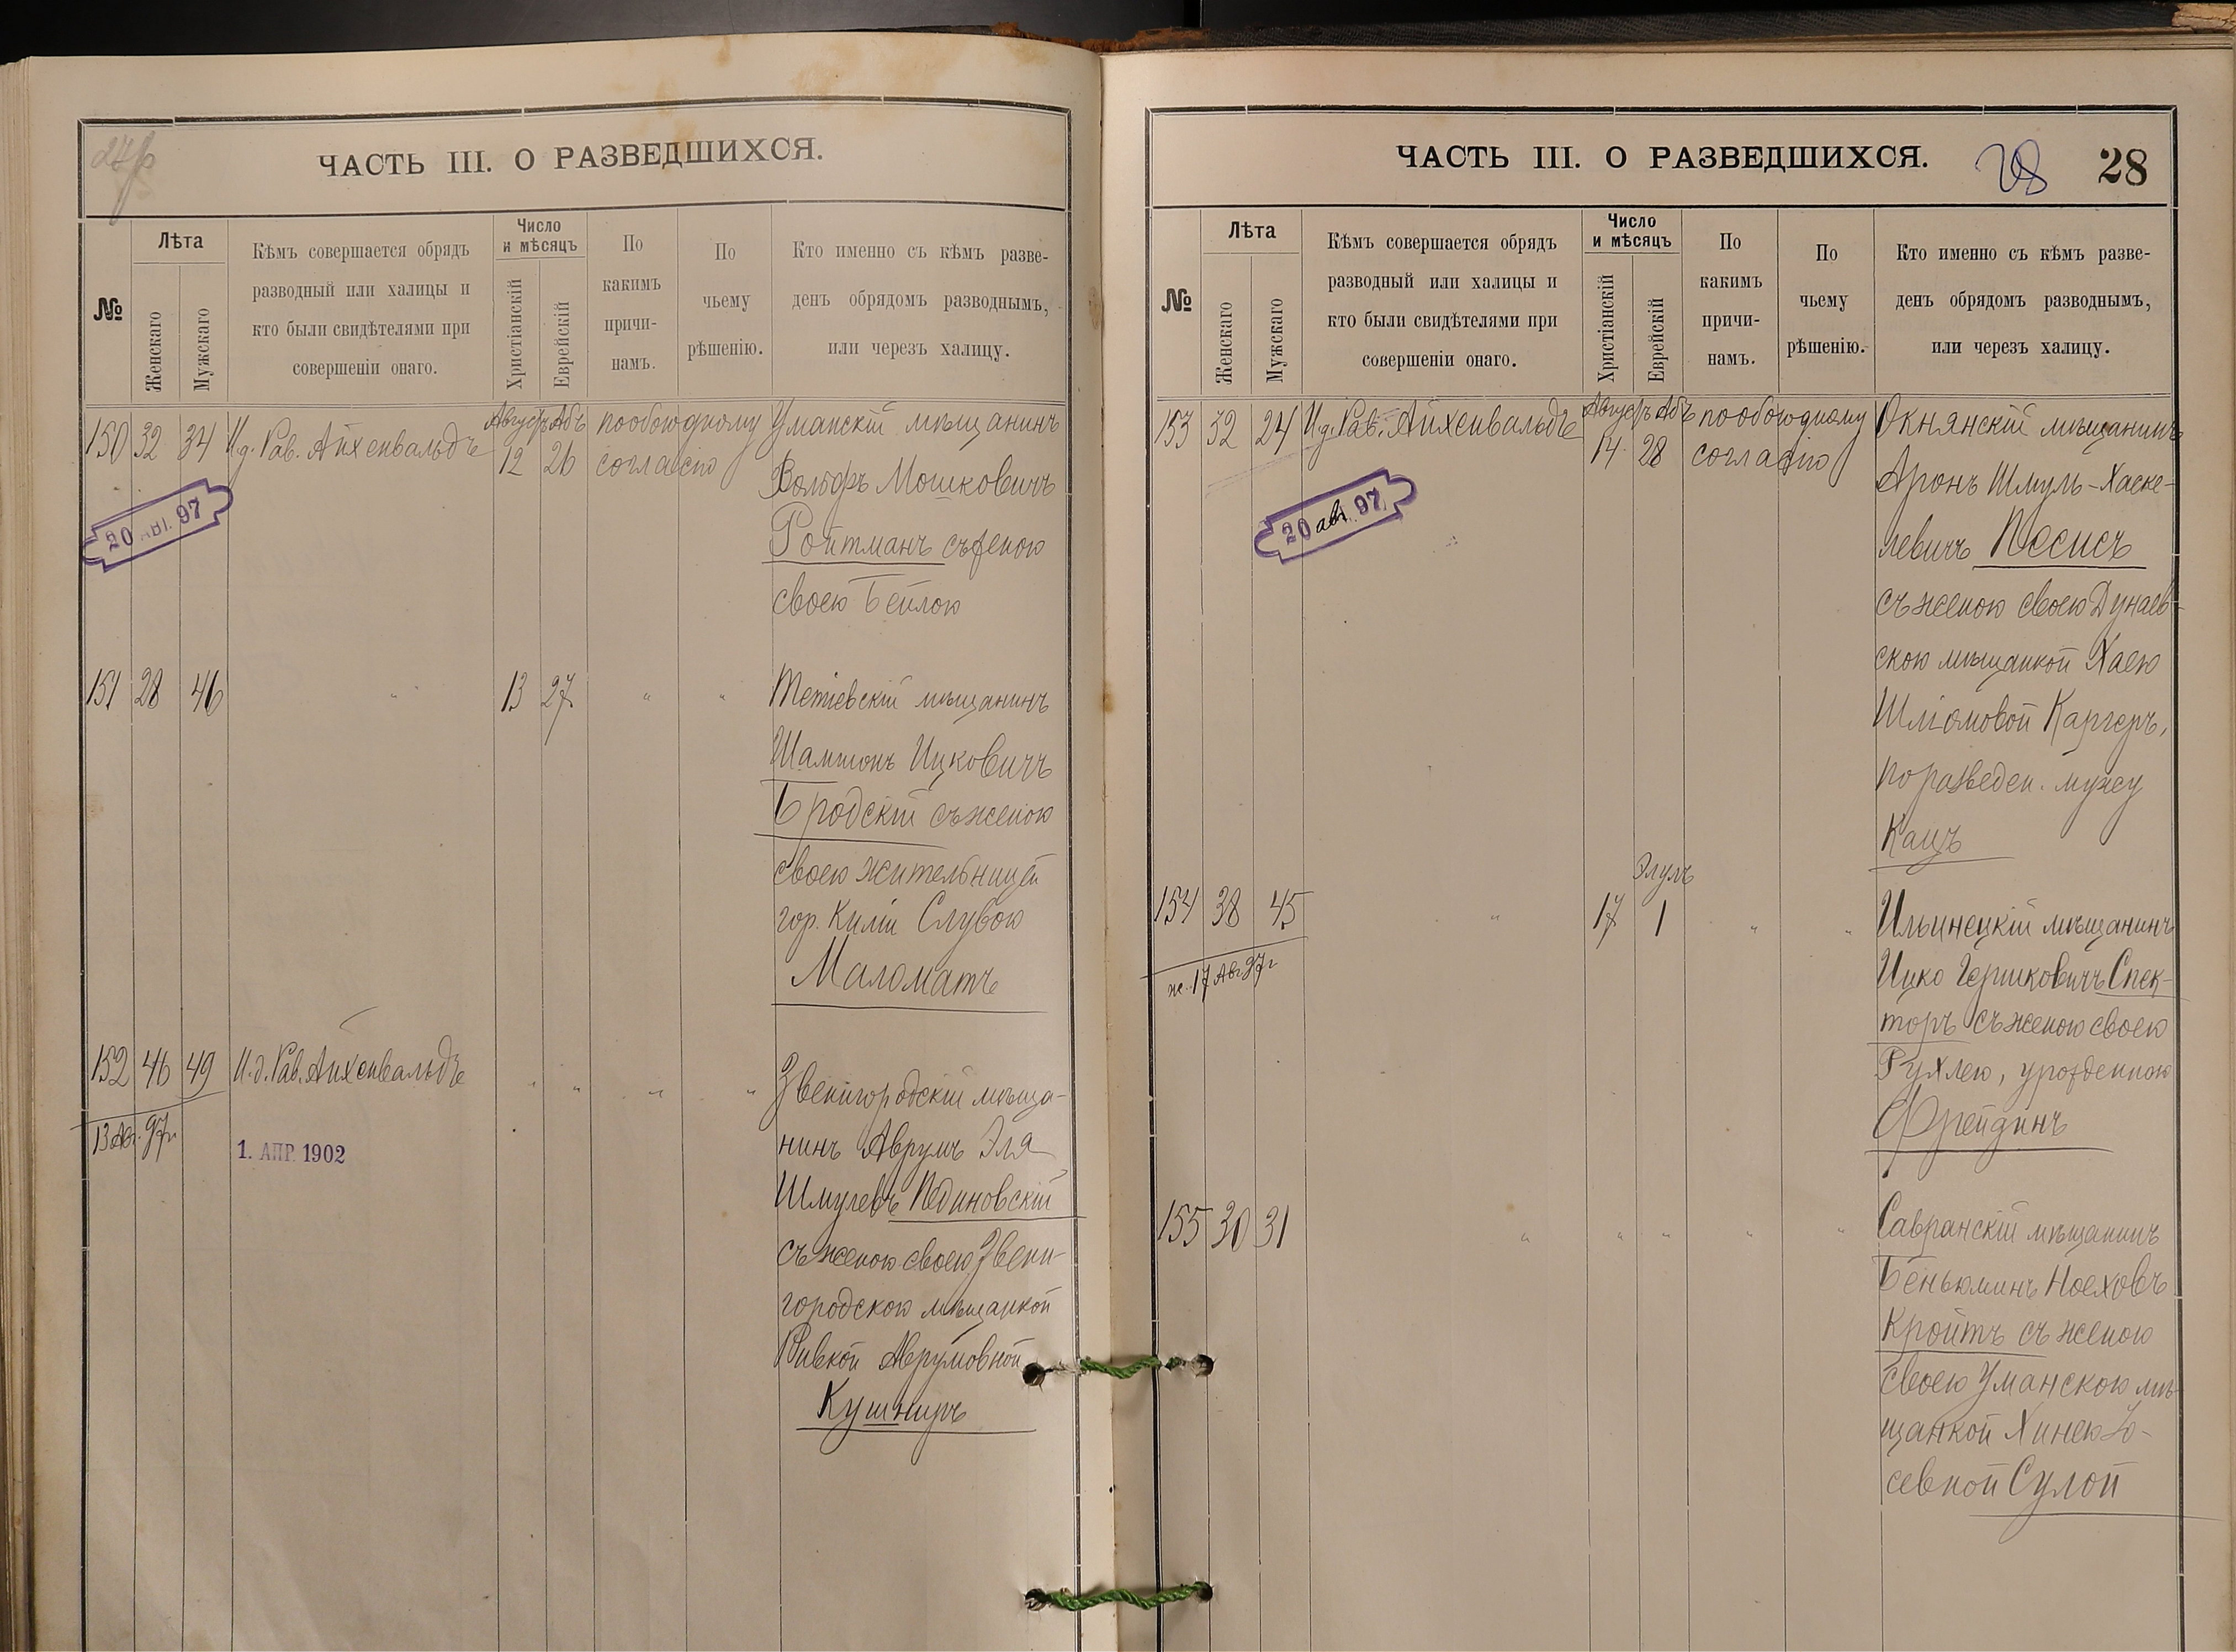 ЧАСТЬ III. О РАЗВЕДШИХСЯ.
№
Лѣта
Женскаго
Мужскаго
Кѣмъ совершается обрядъ
разводный или халицы и
кто были свидѣтелями при
совершеніи онаго.
Число
и мѣсяцъ
Христіанскій
Еврейскій
По
какимъ
причи-
намъ.
По
чьему
рѣшенію.
Кто именно съ кѣмъ разве-
денъ обрядомъ разводнымъ,
или черезъ халицу.
150 32 34 И.д. Рав. Айхенвальдъ
Августъ Абъ
12 26
пообоюдному
согласію
Уманскій мѣщанинъ
Вольфъ Мошковичъ
Ройтманъ съ женою
своею Бейлою
20 АВГ. 97
151 28 46 " 13 27 " "
Тетіевскій мѣщанинъ
Шамшонъ Ицковичъ
Бродскій съ женою
своею жительницей
гор. Киліи Слувою
Маломатъ
152 46 49 И.д. Рав. Айхенвальдъ " " " "
13 Авг. 97 г.
1. АПР. 1902
Звенигородскій мѣща-
нинъ Аврумъ Эля
Шмулевъ Пединовскій
съ женою своею Звени-
городскою мѣщанкой
Ривкой Аврумовной
Кушниръ
ЧАСТЬ III. О РАЗВЕДШИХСЯ.
28 28
№
Лѣта
Женскаго
Мужскаго
Кѣмъ совершается обрядъ
разводный или халицы и
кто были свидѣтелями при
совершеніи онаго.
Число
и мѣсяцъ
Христіанскій
Еврейскій
По
какимъ
причи-
намъ.
По
чьему
рѣшенію.
Кто именно съ кѣмъ разве-
денъ обрядомъ разводнымъ,
или черезъ халицу.
153 32 24 И.д. Рав. Айхенвальдъ
Августъ Абъ
14 28
пообоюдному
согласію
Окнянскій мѣщанинъ
Аронъ Шмуль-Хаске-
левичъ Песисъ
съ женою своею Дунаев-
скою мѣщанкой Хаею
Шліомовой Каргеръ,
по разведен. мужу
Кацъ
20 авг. 97
154 38 45 " 17
Элулъ
1 " "
ж. 17 Авг 97 г
Ильинецкій мѣщанинъ
Ицко Гершковичъ Спек-
торъ съ женою своею
Рухлею, урожденною
Фрейдинъ
155 30 31 " " " " "
Савранскій мѣщанинъ
Беньюминъ Ноеховъ
Кройтъ съ женою
своею Уманскою мѣ-
щанкой Хинею Іо-
севной Сулой